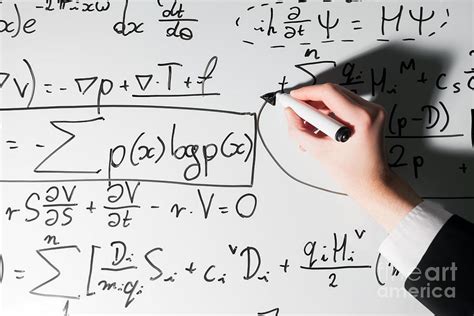 x)e^{-2πixω} dx   dt/dθ   iħ ∂/∂t Ψ = HΨ
∇) = -∇p + ∇·T + f   + Σ^n q_i H_i^M + c_s
= -Σ p(x) log p(x)   (p-D)/2p
rS ∂V/∂S + ∂V/∂t - r.V = 0
= Σ_1^n [ D_i/(m_i q_i) S_i + c_i^V D_i + q_i H_i^V/2
fine art
america